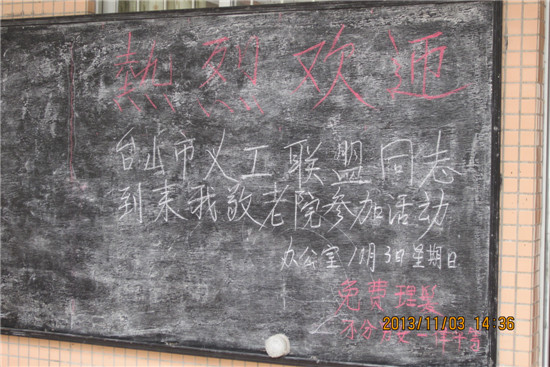 熱烈欢迎
台山市义工联盟同志
到来我敬老院参加活动
办公室 11月3日星期日
免费理发
不分
2013/11/03 14:36